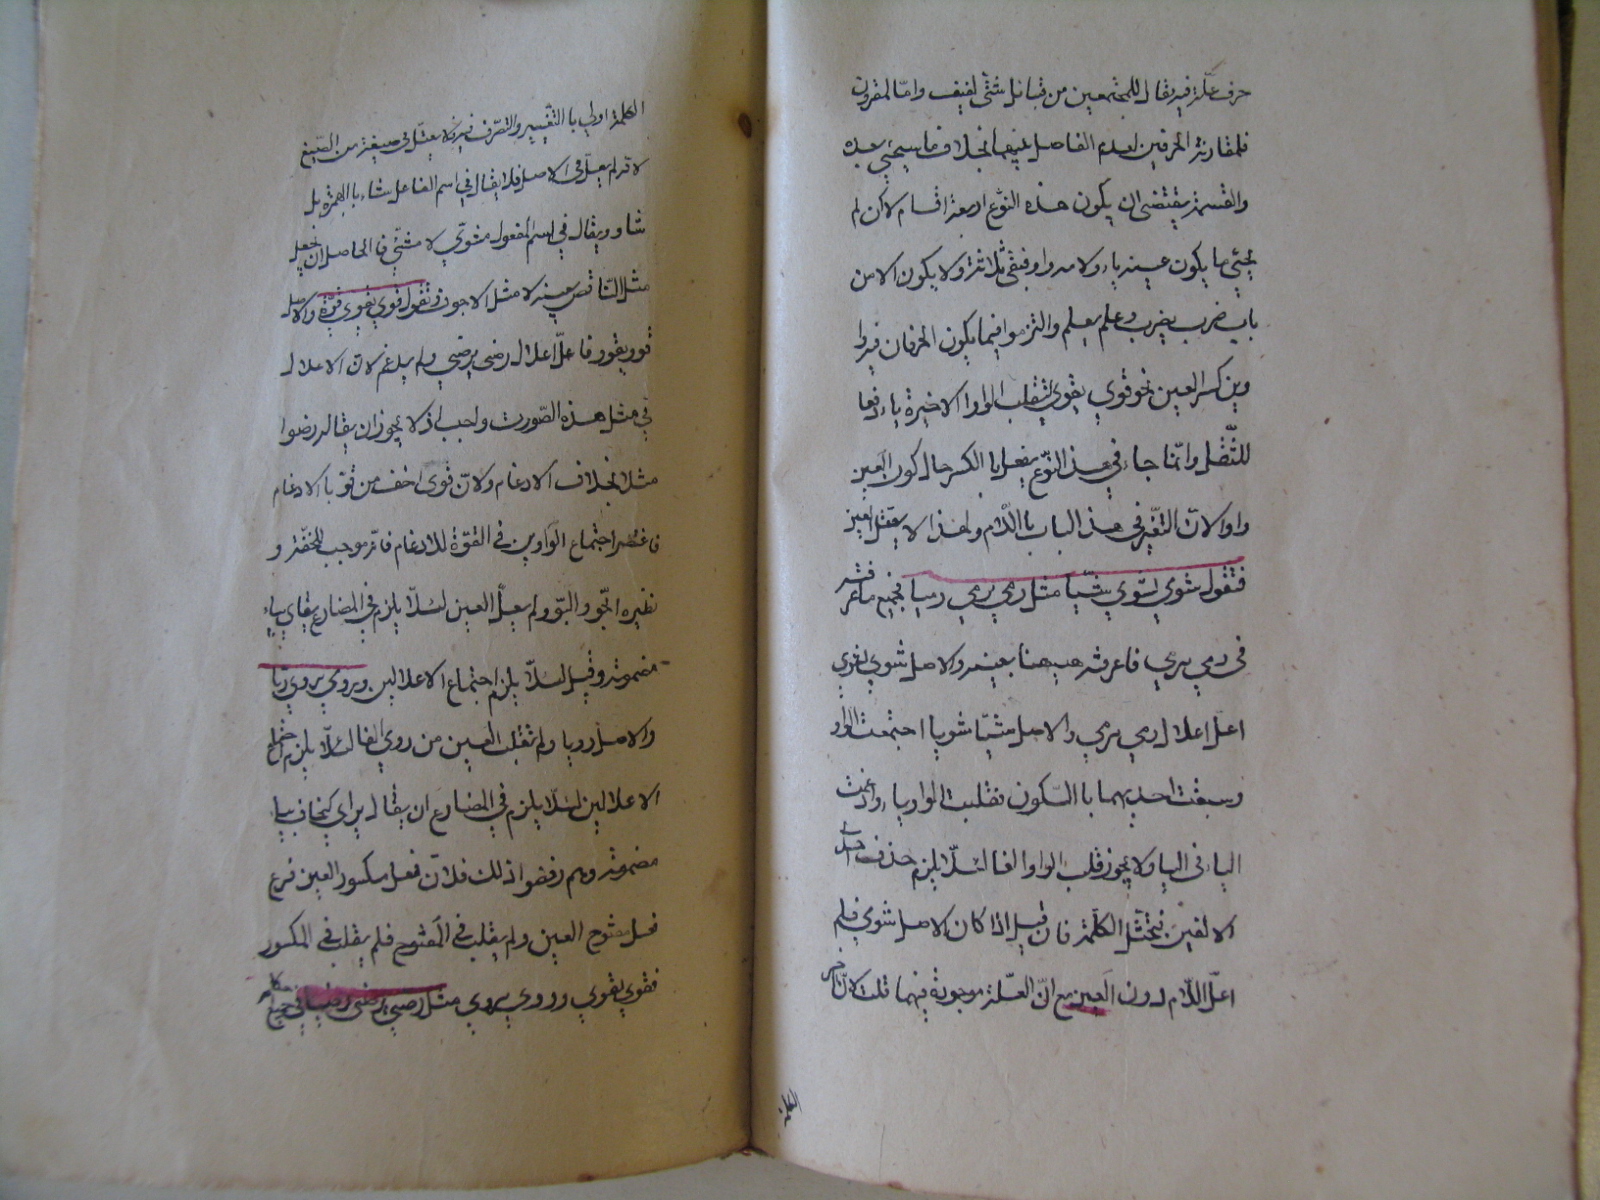 حرف علة فيه يقال للمجتمعين من قبائل شتى لفيف واما المقرون
فلمقارنة الحرفين لعدم الفاصل بينهما بخلاف ما سيجئ بعده
والقسمة يقتضى ان يكون هذه النوع اربعة اقسام لاكن لم
يجئ ما يكون عينه ياء ولامه واوا فبقى ثلاثة ولا يكون الا من
باب ضرب يضرب وعلم يعلم والتزموا فيما يكون الحرفان فيه وا
وين كسر العين نحو قوي يقوى لتقلب الواو الاخيرة ياء دفعا
للثّقل وانّما جاء في هذ النّوع يفعل با الكسر حال كون العين
واوا لانّ التغّير في هذ الباب با اللّام ولهذا لا يعتل العين
فتقول شوي يشوي شيّا مثل رمي يرمي رميا فجميع ما عرفته
فى رمي يرمي فاعرفه هيهنا بعينه والاصل شوي يشوي
اعل اعلال رمي يرمي والاصل شيّا شويا اجتمعت الواو
وسبقت احديهما با السّكون فقلبت الواو ياء وادغمت
الياء فى اليا ولا يجوز قلب الواو الفا لئلّا يلزم حذف احدى
الالفين فيختل الكلمة فان قيل اذا كان الاصل شوي فلم
اعلّ اللّام دون العين مع انّ العلة موجودة فيهما قلت لانّ اخر
الكلمة
الكلمة اولي با التغيير والتصرّف فيه فلا يعتل في صيغة من الصّيغ
لانه لم يعل في الاصل فلا يقال في اسم الفاعل شاء با الهمزة بل
شاو ويقال في اسم المفعول مشوّي لا مشيّ فالحاصل ان يجعل
مثل النّاقص بعينه لا مثل الاجوف وتقول قوي يقوى قوّة والاصل
قوو يقوو فاعلّا اعلال رضى يرضي ولم يدغم لانّ الاعلال
في مثل هذه الصّورت واجب اذ لا يجوز ان يقال رضوا
مثلا بخلاف الادغام ولانّ قوى اخف من قوّ با الادغام
فاغتفر اجتماع الواوين في القوّة للادغام فانّه موجب للخفّة و
نظيره الجّو والبّو ولم يعلّ العين لئلّا يلزم في المضارع يقاي بياء
مضمومة وقيل لئلّا يلزم اجتماع الاعلالين وروي يروي ريّا
والاصل رويا ولم تقلب العين من روي الفا لئلّا يلزم اجتماع
الاعلالين لئلّا يلزم في المضارع ان يقال يراي كيخاف بياء
مضمومة وهم رفضوا ذلك فلانّ فعل مكسور العين فرع
فعل مفتوح العين ولم يقلب فى المفتوح فلم يقلب فى المكسور
فقوي يقوي وروي يروي مثل رضي يرضى رضيا في جميع احكامه